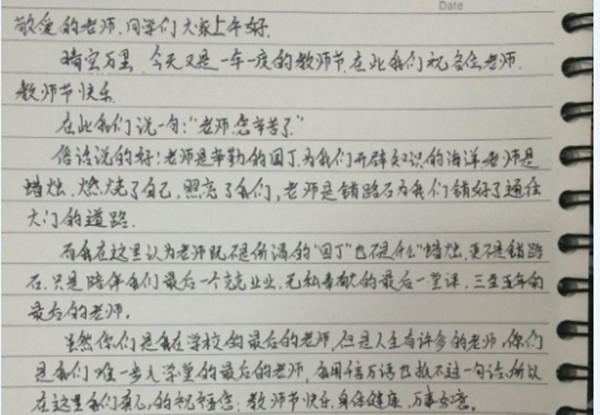 Date
敬爱的老师,同学们大家上午好.
晴空万里,今天又是一年一度的教师节.在此我们祝各位老师.
教师节快乐.
在此我们说一句:"老师您辛苦了"
俗话说的好!老师是辛勤的园丁.为我们开辟知识的海洋.老师是
蜡烛.燃烧了自己,照亮了我们,老师是铺路石为我们铺好了通往
大门的道路.
而我在这里认为老师既不是所谓的"园丁"也不是什么"蜡烛,更不是铺路
石.只是陪伴我们最后一个兢兢业业,无私奉献的最后一堂课,三至五年的
最后的老师.
虽然你们是我在学校的最后的老师,但是人生有许多的老师,你们
是我们唯一步入学堂的最后的老师,千言万语也抵不过一句话.所以
在这里我们真心的祝福您:教师节快乐,身体健康,万事如意.